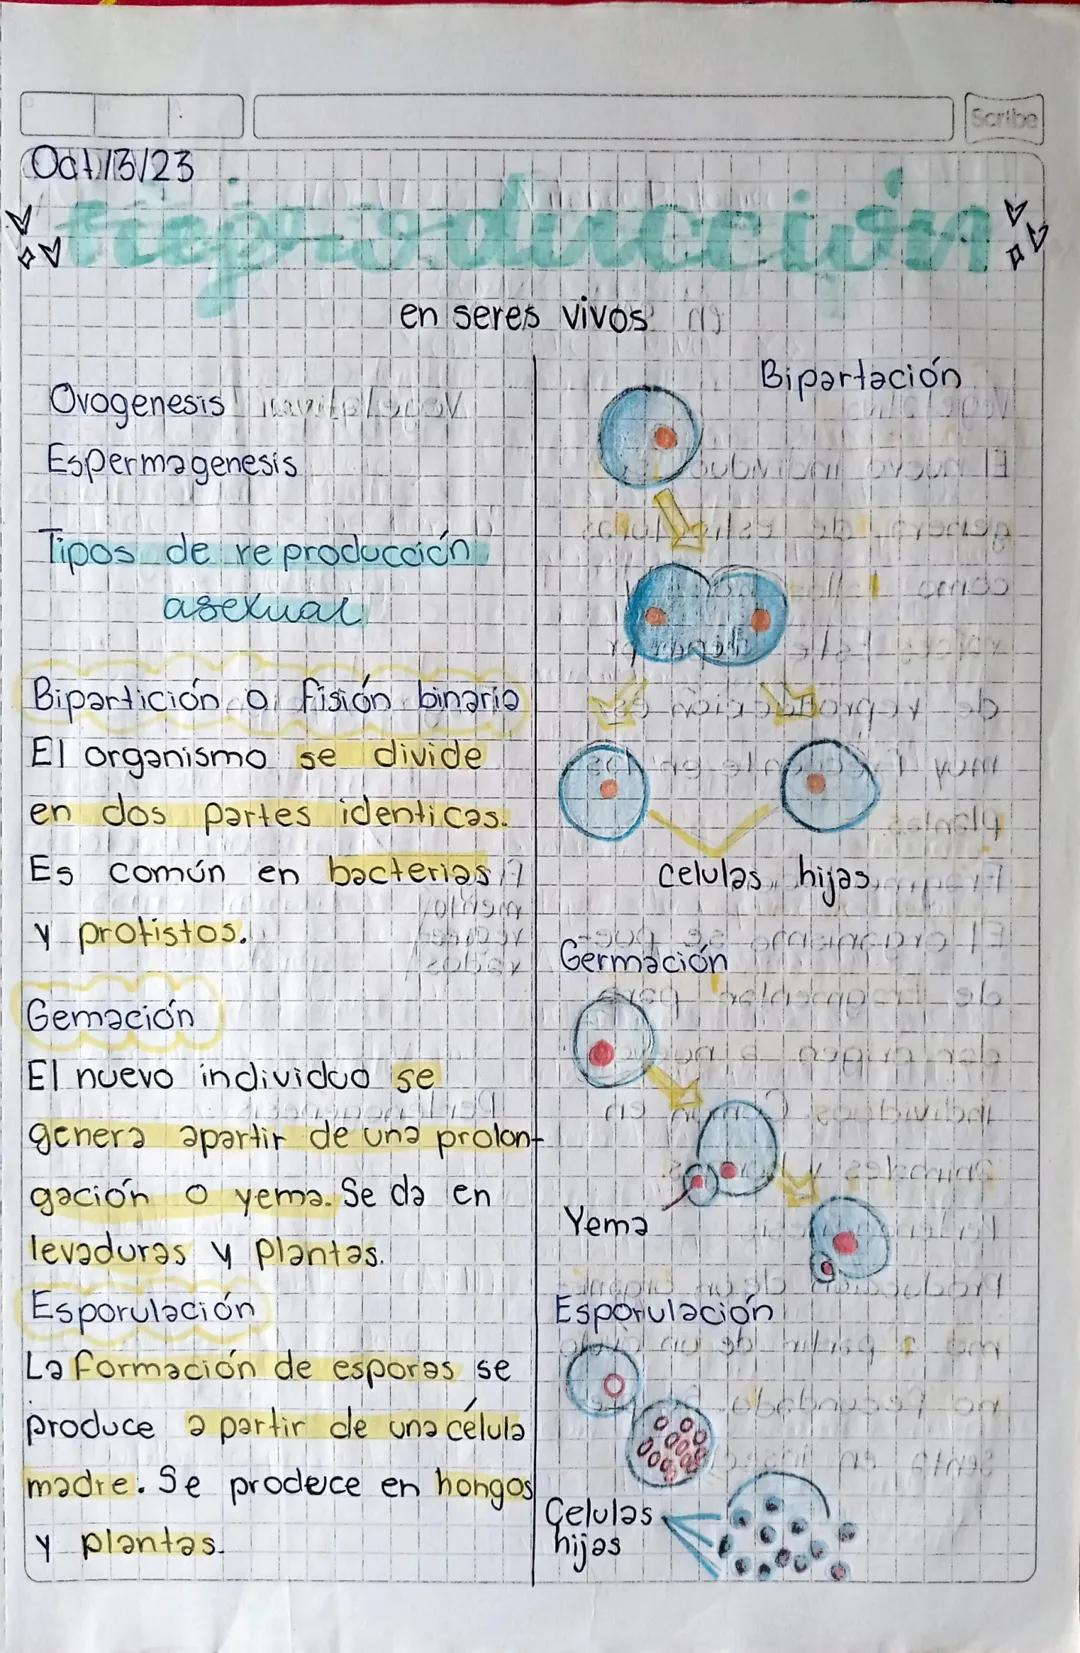 Scribe
Oct/13/23
reproducción
en seres vivos
Ovogenesis
Espermagenesis
Tipos de reproducción
asexual
Bipartición o fisión binaria
El organismo se divide
en dos partes identicas.
Es común en bacterias
y protistos.
Gemación
El nuevo individuo se
genera apartir de una prolon-
gación o yema. Se da en
levaduras y plantas.
Esporulación
La formación de esporas se
produce a partir de una célula
madre. Se produce en hongos
y plantas.
Bipartación
celulas hijas
Germación
Yema
Esporulación
Celulas
hijas